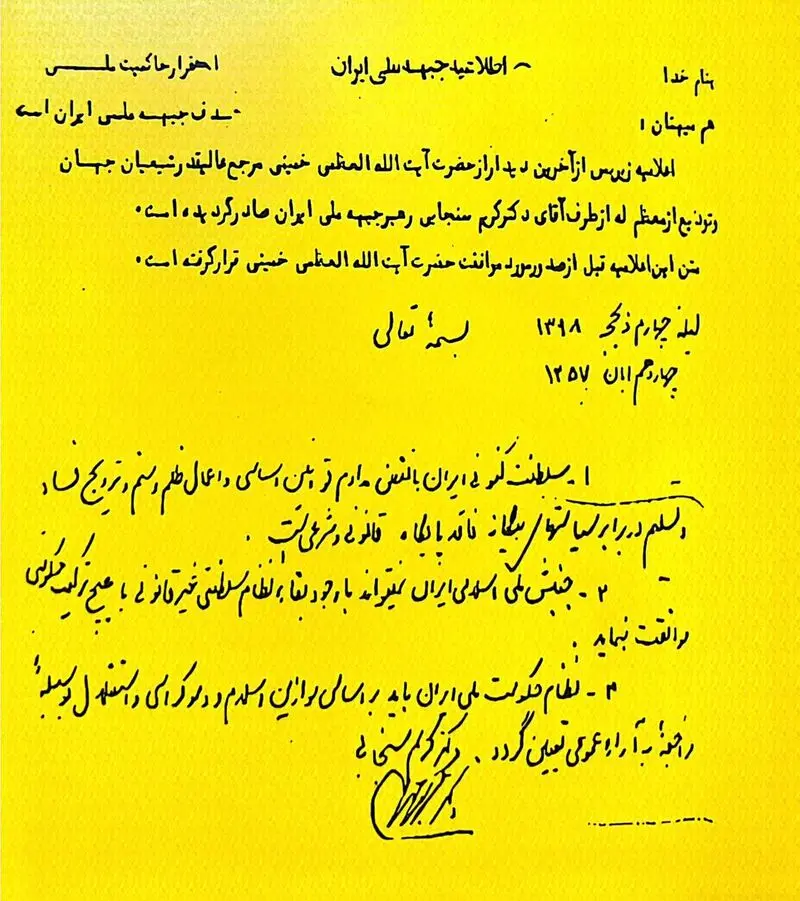 بنام خدا
اطلاعیه جبهه ملی ایران
استقرار حاکمیت ملی
هدف جبهه ملی ایران است
هم میهنان :
اعلامیه زیر پس از آخرین دیدار از حضرت آیت الله العظمی خمینی مرجع عالیقدر شیعیان جهان
وتودیع از معظم له از طرف آقای دکتر کریم سنجابی رهبر جبهه ملی ایران صادر گردیده است.
متن این اعلامیه قبل از صدور مورد موافقت حضرت آیت الله العظمی خمینی قرار گرفته است.
لیله چهارم ذیحجه ۱۳۹۸
بسمه تعالی
چهاردهم ابان ۱۳۵۷
۱ـ سلطنت کنونی ایران با نقض مداوم قوانین اساسی و اعمال ظلم و ستم و ترویج فساد
و تسلیم در برابر سیاستهای بیگانه فاقد پایگاه قانونی و شرعی است.
۲ـ جنبش ملی اسلامی ایران نمیتواند با وجود بقاء نظام سلطنتی غیر قانونی با هیچ ترکیب حکومتی
موافقت نماید.
۳ـ نظام حکومت ملی ایران باید بر اساس موازین اسلام و دموکراسی و استقلال بوسیلهٔ
مراجعهٔ به آراء عمومی تعیین گردد. دکتر کریم سنجابی